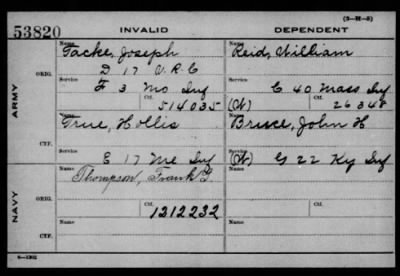 (3-H-5)
53820 INVALID DEPENDENT
Name Name
Tacke, Joseph Reid, William
D 17 V.R.C
ORIG. Service Service
F 3 Mo Inf C 40 Mass Inf
Ctf. Ctf.
514035 (W) 26348
ARMY
Name Name
True, Hollis Bruce, John H
CTF. Service Service
E 17 Me Inf (W) G 22 Ky Inf
Name Name
Thompson, Frank G.
ORIG.
Ctf. Ctf.
1212232
NAVY
Name Name
CTF.
6-1302